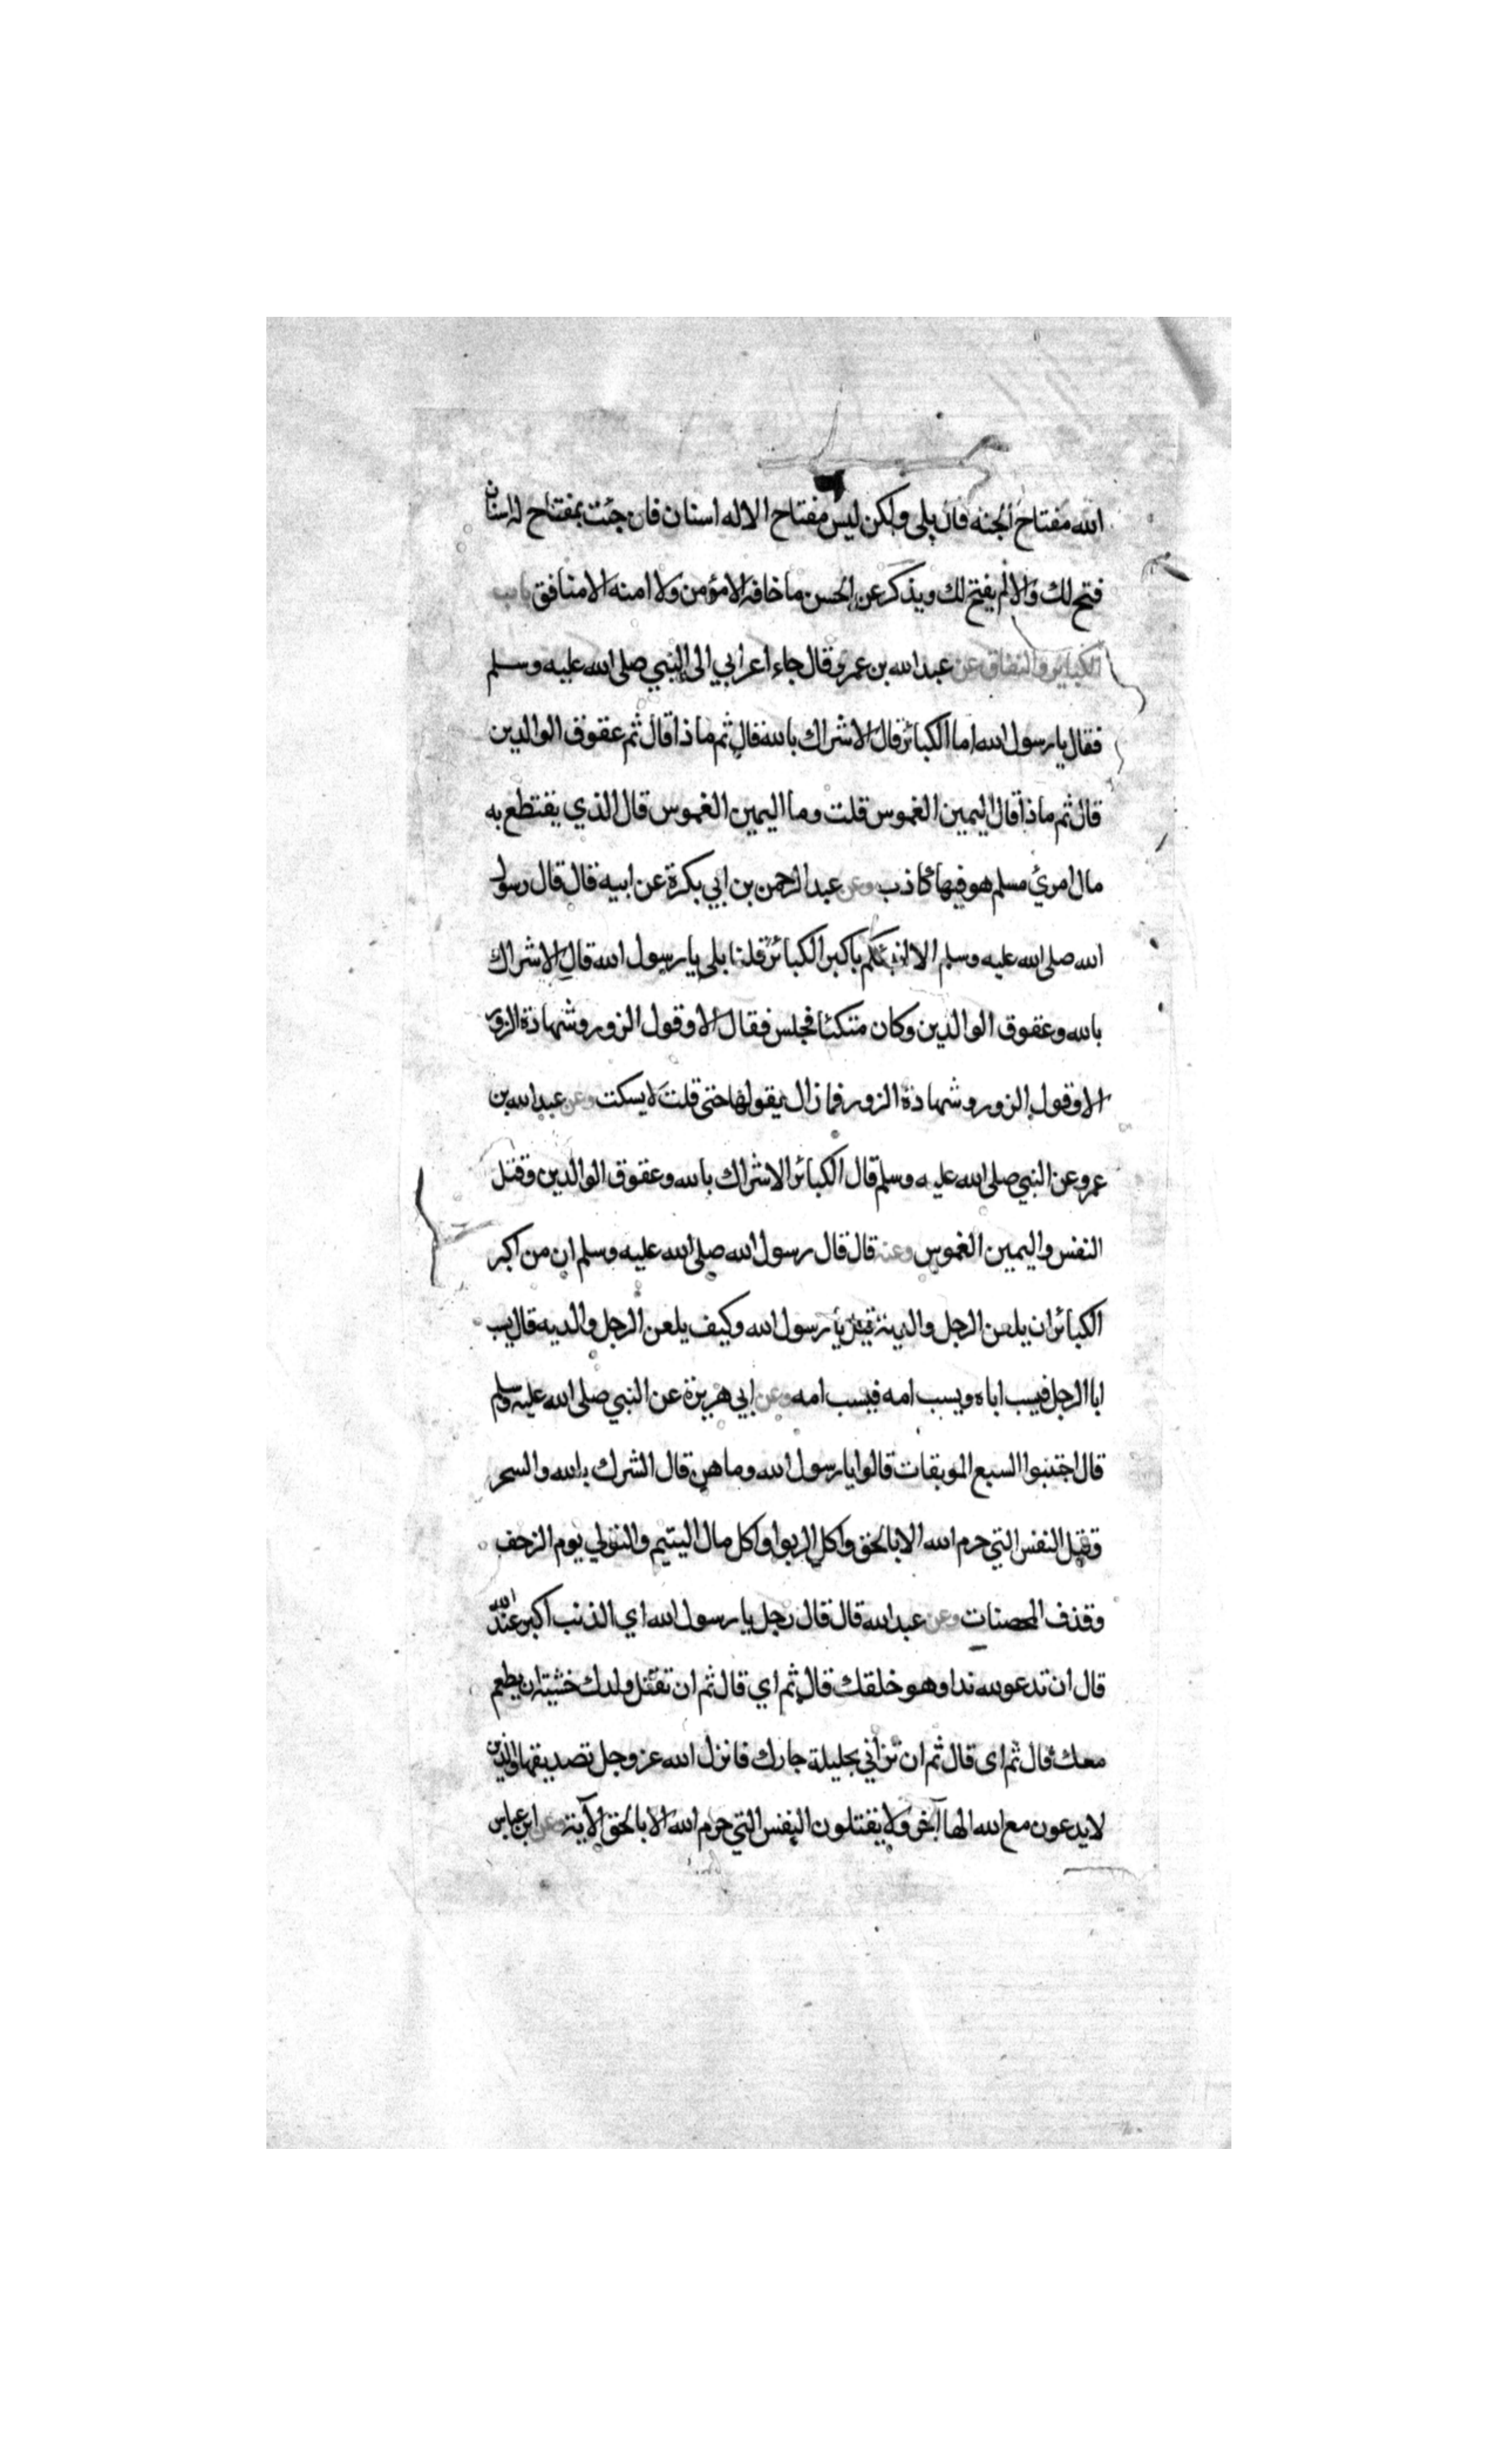 الله مفتاح الجنه قال بلى ولكن ليس مفتاح الا له اسنان فان جئت بمفتاح له اسنان
فتح لك والا لم يفتح لك ويذكر عن الحسن ما خافه الا مؤمن ولا امنه الا منافق باب
الكبائر والنفاق عن عبد الله بن عمرو قال جاء اعرابي الى النبي صلى الله عليه وسلم
فقال يا رسول الله اما الكبائر قال الاشراك بالله قال ثم ماذا قال ثم عقوق الوالدين
قال ثم ماذا قال اليمين الغموس قلت وما اليمين الغموس قال الذي يقتطع به
مال امرئ مسلم هو فيها كاذب وعن عبد الرحمن بن ابي بكرة عن ابيه قال قال رسول
الله صلى الله عليه وسلم الا انبئكم باكبر الكبائر قلنا بلى يا رسول الله قال الاشراك
بالله وعقوق الوالدين وكان متكئا فجلس فقال الا وقول الزور وشهادة الزور
الا وقول الزور وشهادة الزور فما زال يقولها حتى قلت لا يسكت وعن عبد الله بن
عمرو عن النبي صلى الله عليه وسلم قال الكبائر الاشراك بالله وعقوق الوالدين وقتل
النفس واليمين الغموس وعنه قال قال رسول الله صلى الله عليه وسلم ان من اكبر
الكبائر ان يلعن الرجل والديه قيل يا رسول الله وكيف يلعن الرجل والديه قال يسب
ابا الرجل فيسب اباه ويسب امه فيسب امه وعن ابي هريرة عن النبي صلى الله عليه وسلم
قال اجتنبوا السبع الموبقات قالوا يا رسول الله وما هن قال الشرك بالله والسحر
وقتل النفس التي حرم الله الا بالحق واكل الربوا واكل مال اليتيم والتولي يوم الزحف
وقذف المحصنات وعن عبد الله قال قال رجل يا رسول الله اي الذنب اكبر عند الله
قال ان تدعو لله ندا وهو خلقك قال ثم اي قال ثم ان تقتل ولدك خشية ان يطعم
معك قال ثم اى قال ثم ان تزاني بحليلة جارك فانزل الله عز وجل تصديقها والذين
لا يدعون مع الله الها آخر ولا يقتلون النفس التي حرم الله الا بالحق الآية وعن ابن عباس